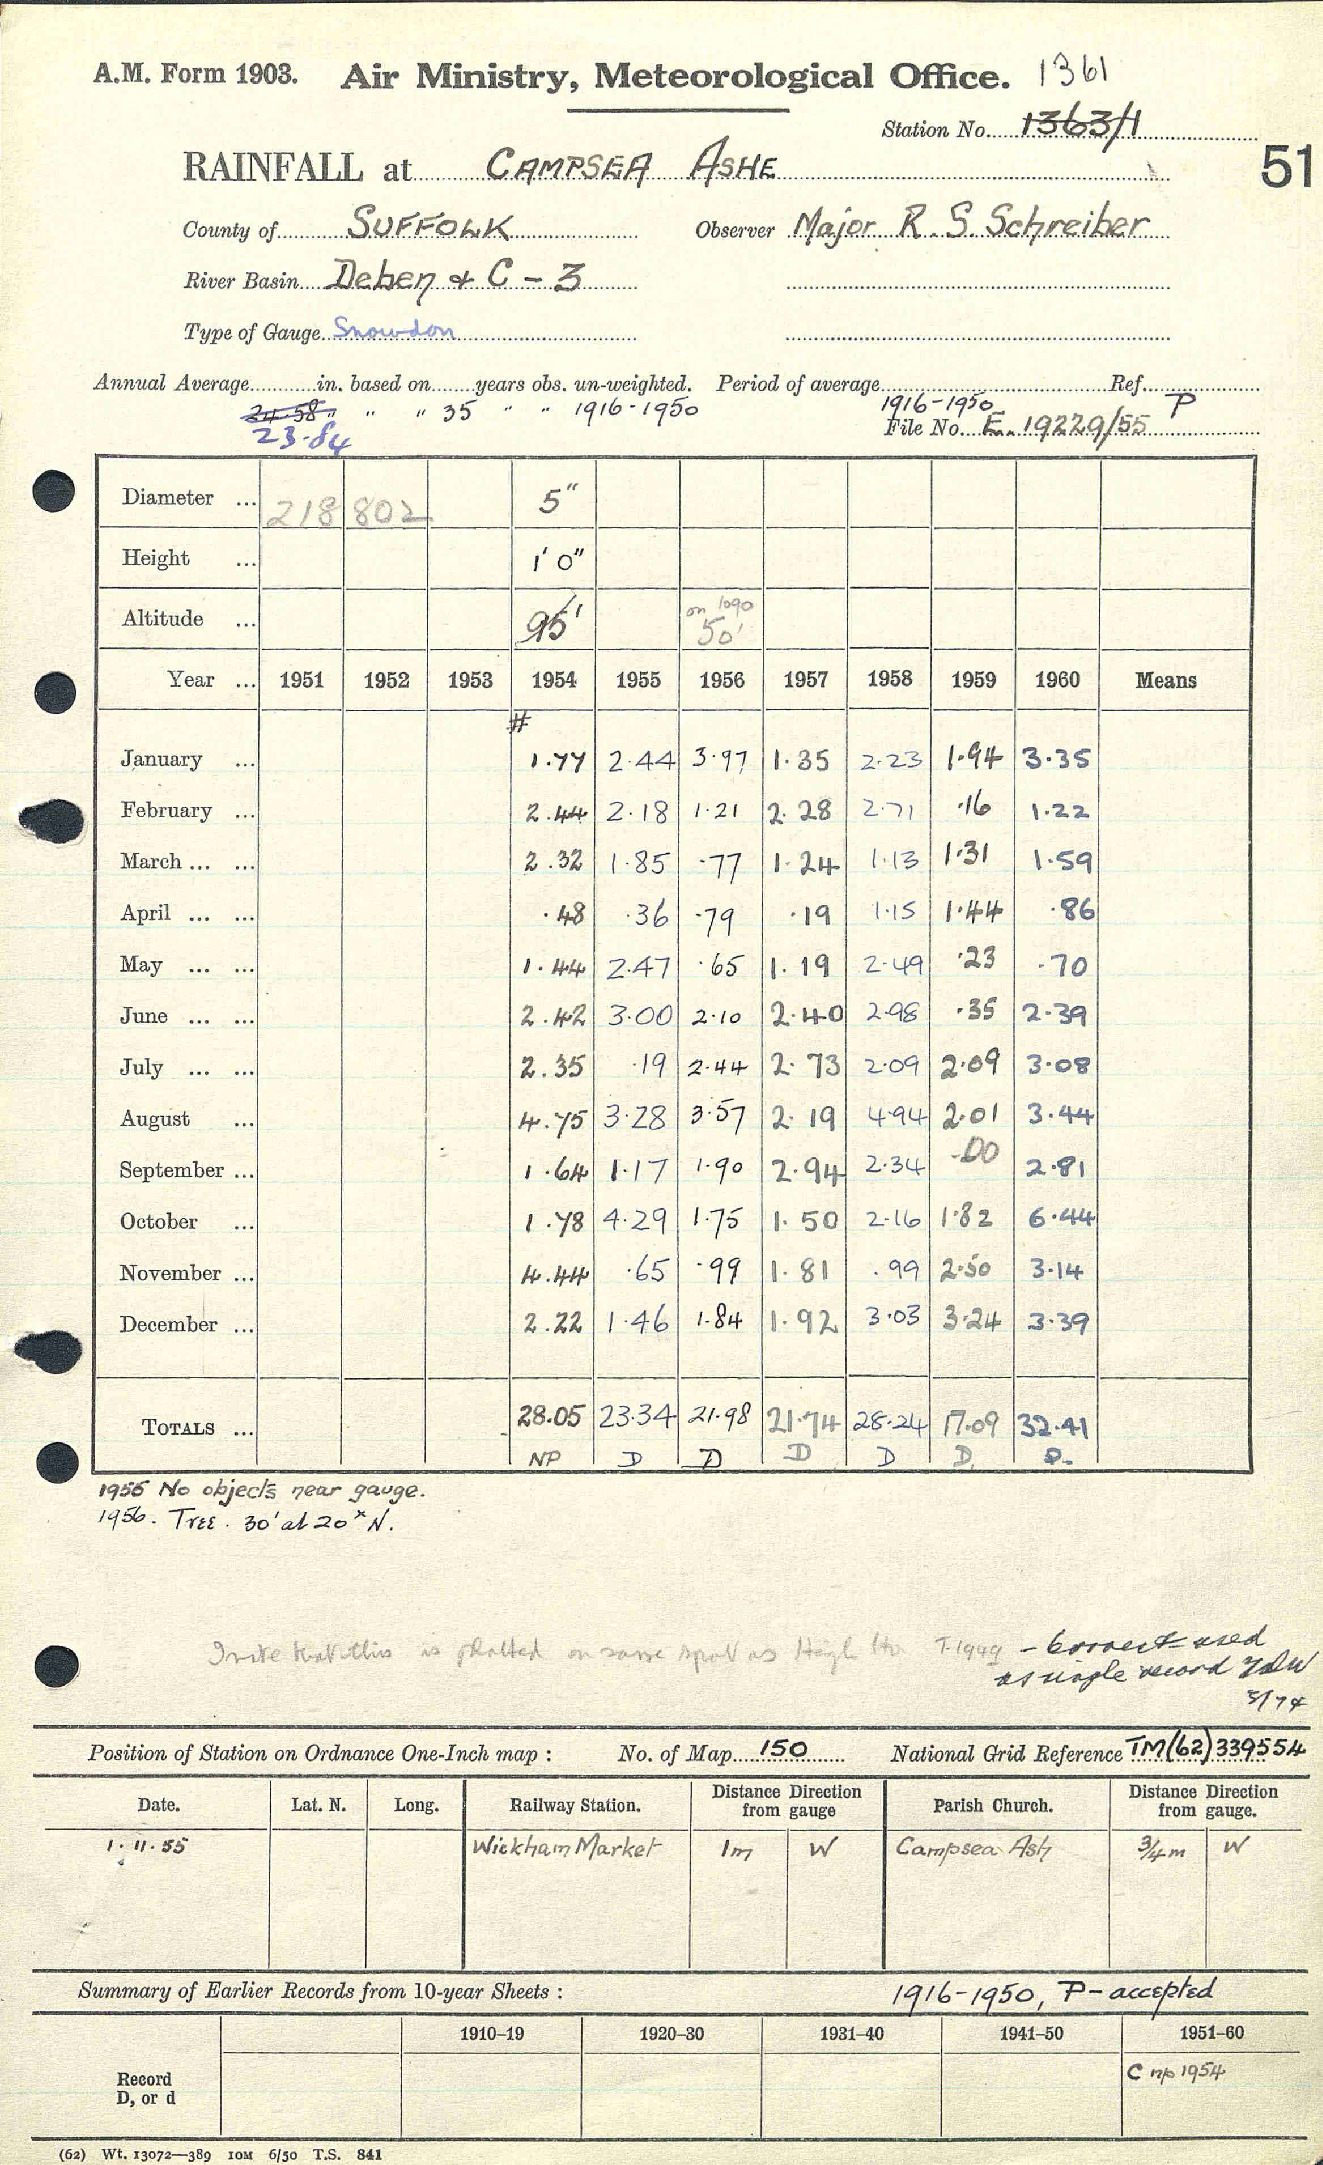 A.M. Form 1903. Air Ministry, Meteorological Office. 1361
Station No. 1363/1
51
RAINFALL at CAMPSEA ASHE
County of SUFFOLK Observer Major R. S. Schreiber
River Basin Deben & C - 3
Type of Gauge Snowdon
Annual Average in. based on years obs. un-weighted. Period of average Ref.
24.58 " " " 35 " " 1916-1950 1916-1950 P
23.84 File No. E. 19229/55
Diameter ... 218 802 5"
Height ... 1' 0"
Altitude ... 95' on 1090 50'
Year ... 1951 1952 1953 1954 1955 1956 1957 1958 1959 1960 Means
#
January ... 1.77 2.44 3.97 1.35 2.23 1.94 3.35
February ... 2.44 2.18 1.21 2.28 2.71 .16 1.22
March ... ... 2.32 1.85 .77 1.24 1.13 1.31 1.59
April ... ... .48 .36 .79 .19 1.15 1.44 .86
May ... ... 1.44 2.47 .65 1.19 2.49 .23 .70
June ... ... 2.42 3.00 2.10 2.40 2.98 .35 2.39
July ... ... 2.35 .19 2.44 2.73 2.09 2.09 3.08
August ... 4.75 3.28 3.57 2.19 4.94 2.01 3.44
September ... 1.64 1.17 1.90 2.94 2.34 .00 2.81
October ... 1.78 4.29 1.75 1.50 2.16 1.82 6.44
November ... 4.44 .65 .99 1.81 .99 2.50 3.14
December ... 2.22 1.46 1.84 1.92 3.03 3.24 3.39
TOTALS ... 28.05 23.34 21.98 21.74 28.24 17.09 32.41
NP D D D D D. D.
1955 No objects near gauge.
1956. Tree. 30' at 20° N.
this is plotted on same spot as High Ho T-1949 - Correct used
as single record
5/74
Position of Station on Ordnance One-Inch map : No. of Map 150 National Grid Reference TM(62)339554
Date. Lat. N. Long. Railway Station. Distance from gauge Direction Parish Church. Distance from gauge. Direction
1.11.55 Wickham Market 1m W Campsea Ash 3/4m W
Summary of Earlier Records from 10-year Sheets : 1916-1950, P-accepted
1910–19 1920–30 1931–40 1941–50 1951–60
Record C np 1954
D, or d
(62) Wt. 13072—389 10M 6/50 T.S. 841